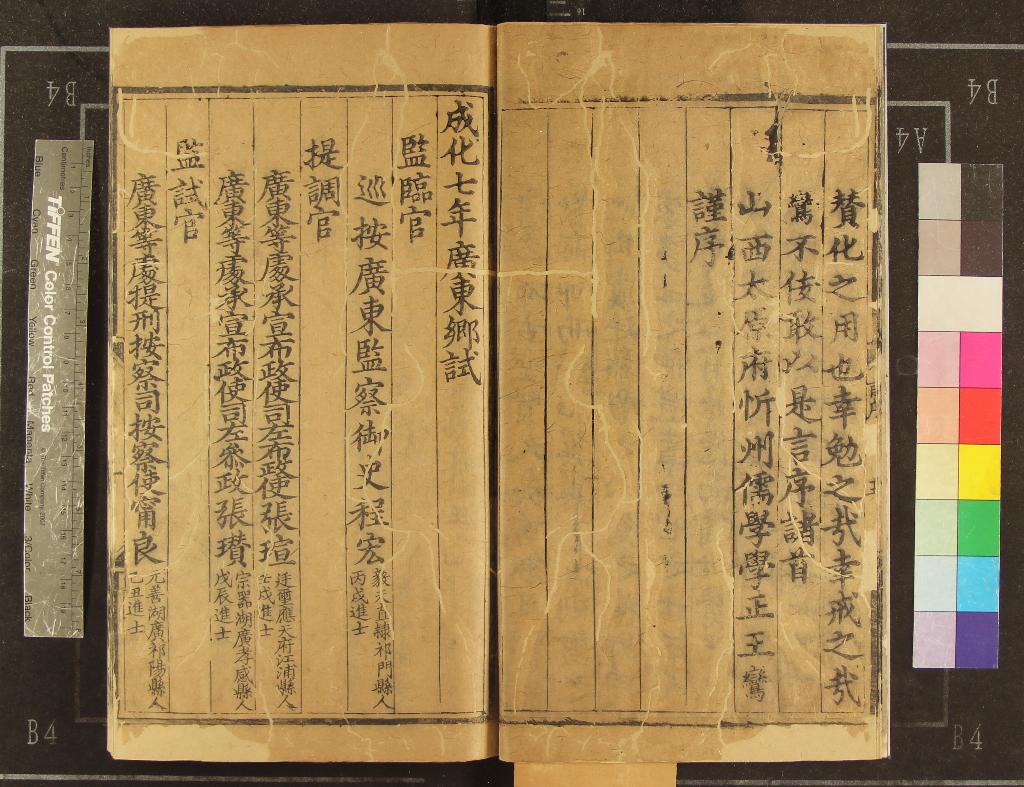 贊化之用也幸勉之哉幸戒之哉
鸞不佞敢以是言序諸首
山西太原府忻州儒學學正王鸞
謹序
成化七年廣東鄉試
監臨官
巡按廣東監察御史程宏 毅夫直隸祁門縣人
丙戌進士
提調官
廣東等處承宣布政使司左布政使張瑄 廷璽應天府江浦縣人
壬戌進士
廣東等處承宣布政使司左叅政張瓚 宗器湖廣孝感縣人
戊辰進士
監試官
廣東等處提刑按察司按察使甯良 元善湖廣祁陽縣人
乙丑進士
B4
B4
A4
B4
B4
TIFFEN Color Control Patches
Centimetres
Inches
Blue
Cyan
Green
Yellow
Red
Magenta
White
3/Color
Black